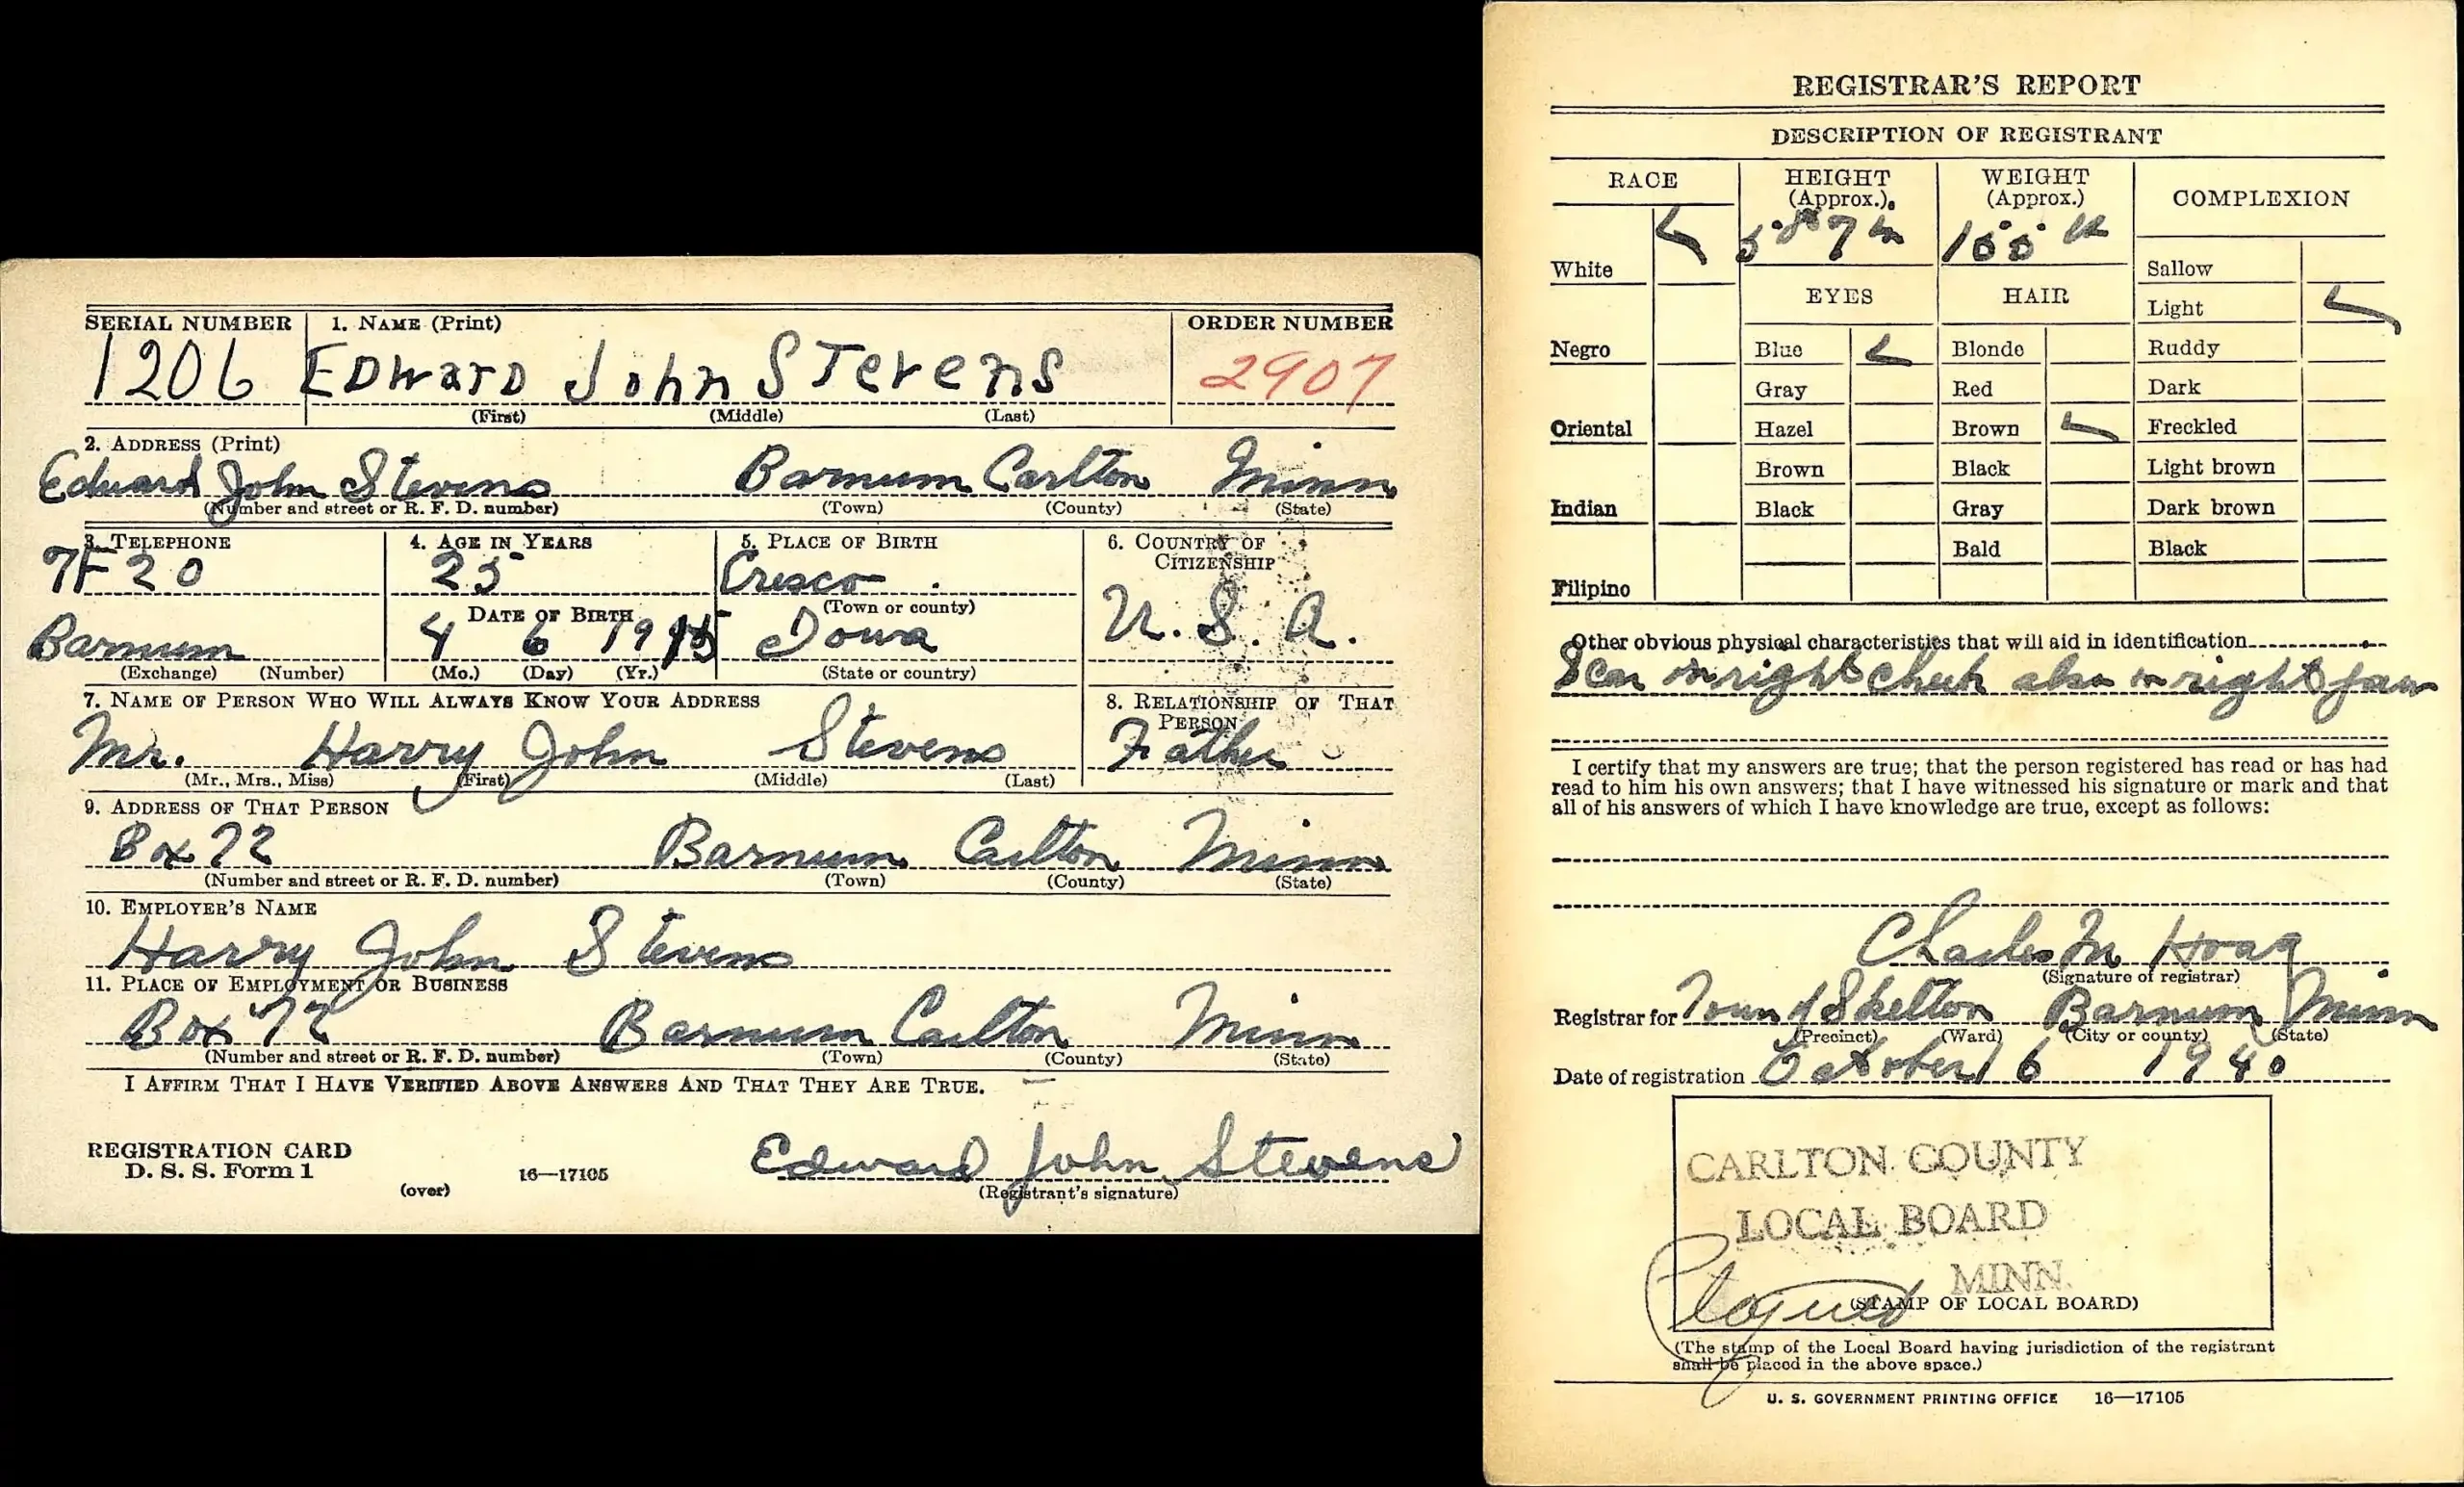 SERIAL NUMBER 1. NAME (Print) ORDER NUMBER
1206 EDWARD John STevens 2907
(First) (Middle) (Last)
2. ADDRESS (Print)
Edward John Stevens Barnum Carlton Minn
(Number and street or R. F. D. number) (Town) (County) (State)
3. TELEPHONE 4. AGE IN YEARS 5. PLACE OF BIRTH 6. COUNTRY OF
CITIZENSHIP
7F20 25 Cresco
(Town or county)
DATE OF BIRTH U. S. A.
Barnum 4 6 1915 Iowa
(Exchange) (Number) (Mo.) (Day) (Yr.) (State or country)
7. NAME OF PERSON WHO WILL ALWAYS KNOW YOUR ADDRESS 8. RELATIONSHIP OF THAT
PERSON
Mr. Harry John Stevens Father
(Mr., Mrs., Miss) (First) (Middle) (Last)
9. ADDRESS OF THAT PERSON
Box 72 Barnum Carlton Minn
(Number and street or R. F. D. number) (Town) (County) (State)
10. EMPLOYER'S NAME
Harry John Stevens
11. PLACE OF EMPLOYMENT OR BUSINESS
Box 72 Barnum Carlton Minn
(Number and street or R. F. D. number) (Town) (County) (State)
I AFFIRM THAT I HAVE VERIFIED ABOVE ANSWERS AND THAT THEY ARE TRUE.
REGISTRATION CARD
D. S. S. Form 1 16—17105 Edward John Stevens
(over) (Registrant's signature)
REGISTRAR'S REPORT
DESCRIPTION OF REGISTRANT
RACE HEIGHT WEIGHT COMPLEXION
(Approx.) (Approx.)
5 ft 7 in
White Sallow
EYES HAIR Light
Negro Blue Blonde Ruddy
Gray Red Dark
Oriental Hazel Brown Freckled
Brown Black Light brown
Indian Black Gray Dark brown
Bald Black
Filipino
Other obvious physical characteristics that will aid in identification
Scar on right cheek also on right jaw
I certify that my answers are true; that the person registered has read or has had
read to him his own answers; that I have witnessed his signature or mark and that
all of his answers of which I have knowledge are true, except as follows:
Charles M Hoag
(Signature of registrar)
Registrar for Town of Skelton Barnum Minn
(Precinct) (Ward) (City or county) (State)
Date of registration October 16 1940
CARLTON COUNTY
LOCAL BOARD
MINN.
(STAMP OF LOCAL BOARD)
(The stamp of the Local Board having jurisdiction of the registrant
shall be placed in the above space.)
U. S. GOVERNMENT PRINTING OFFICE 16—17105